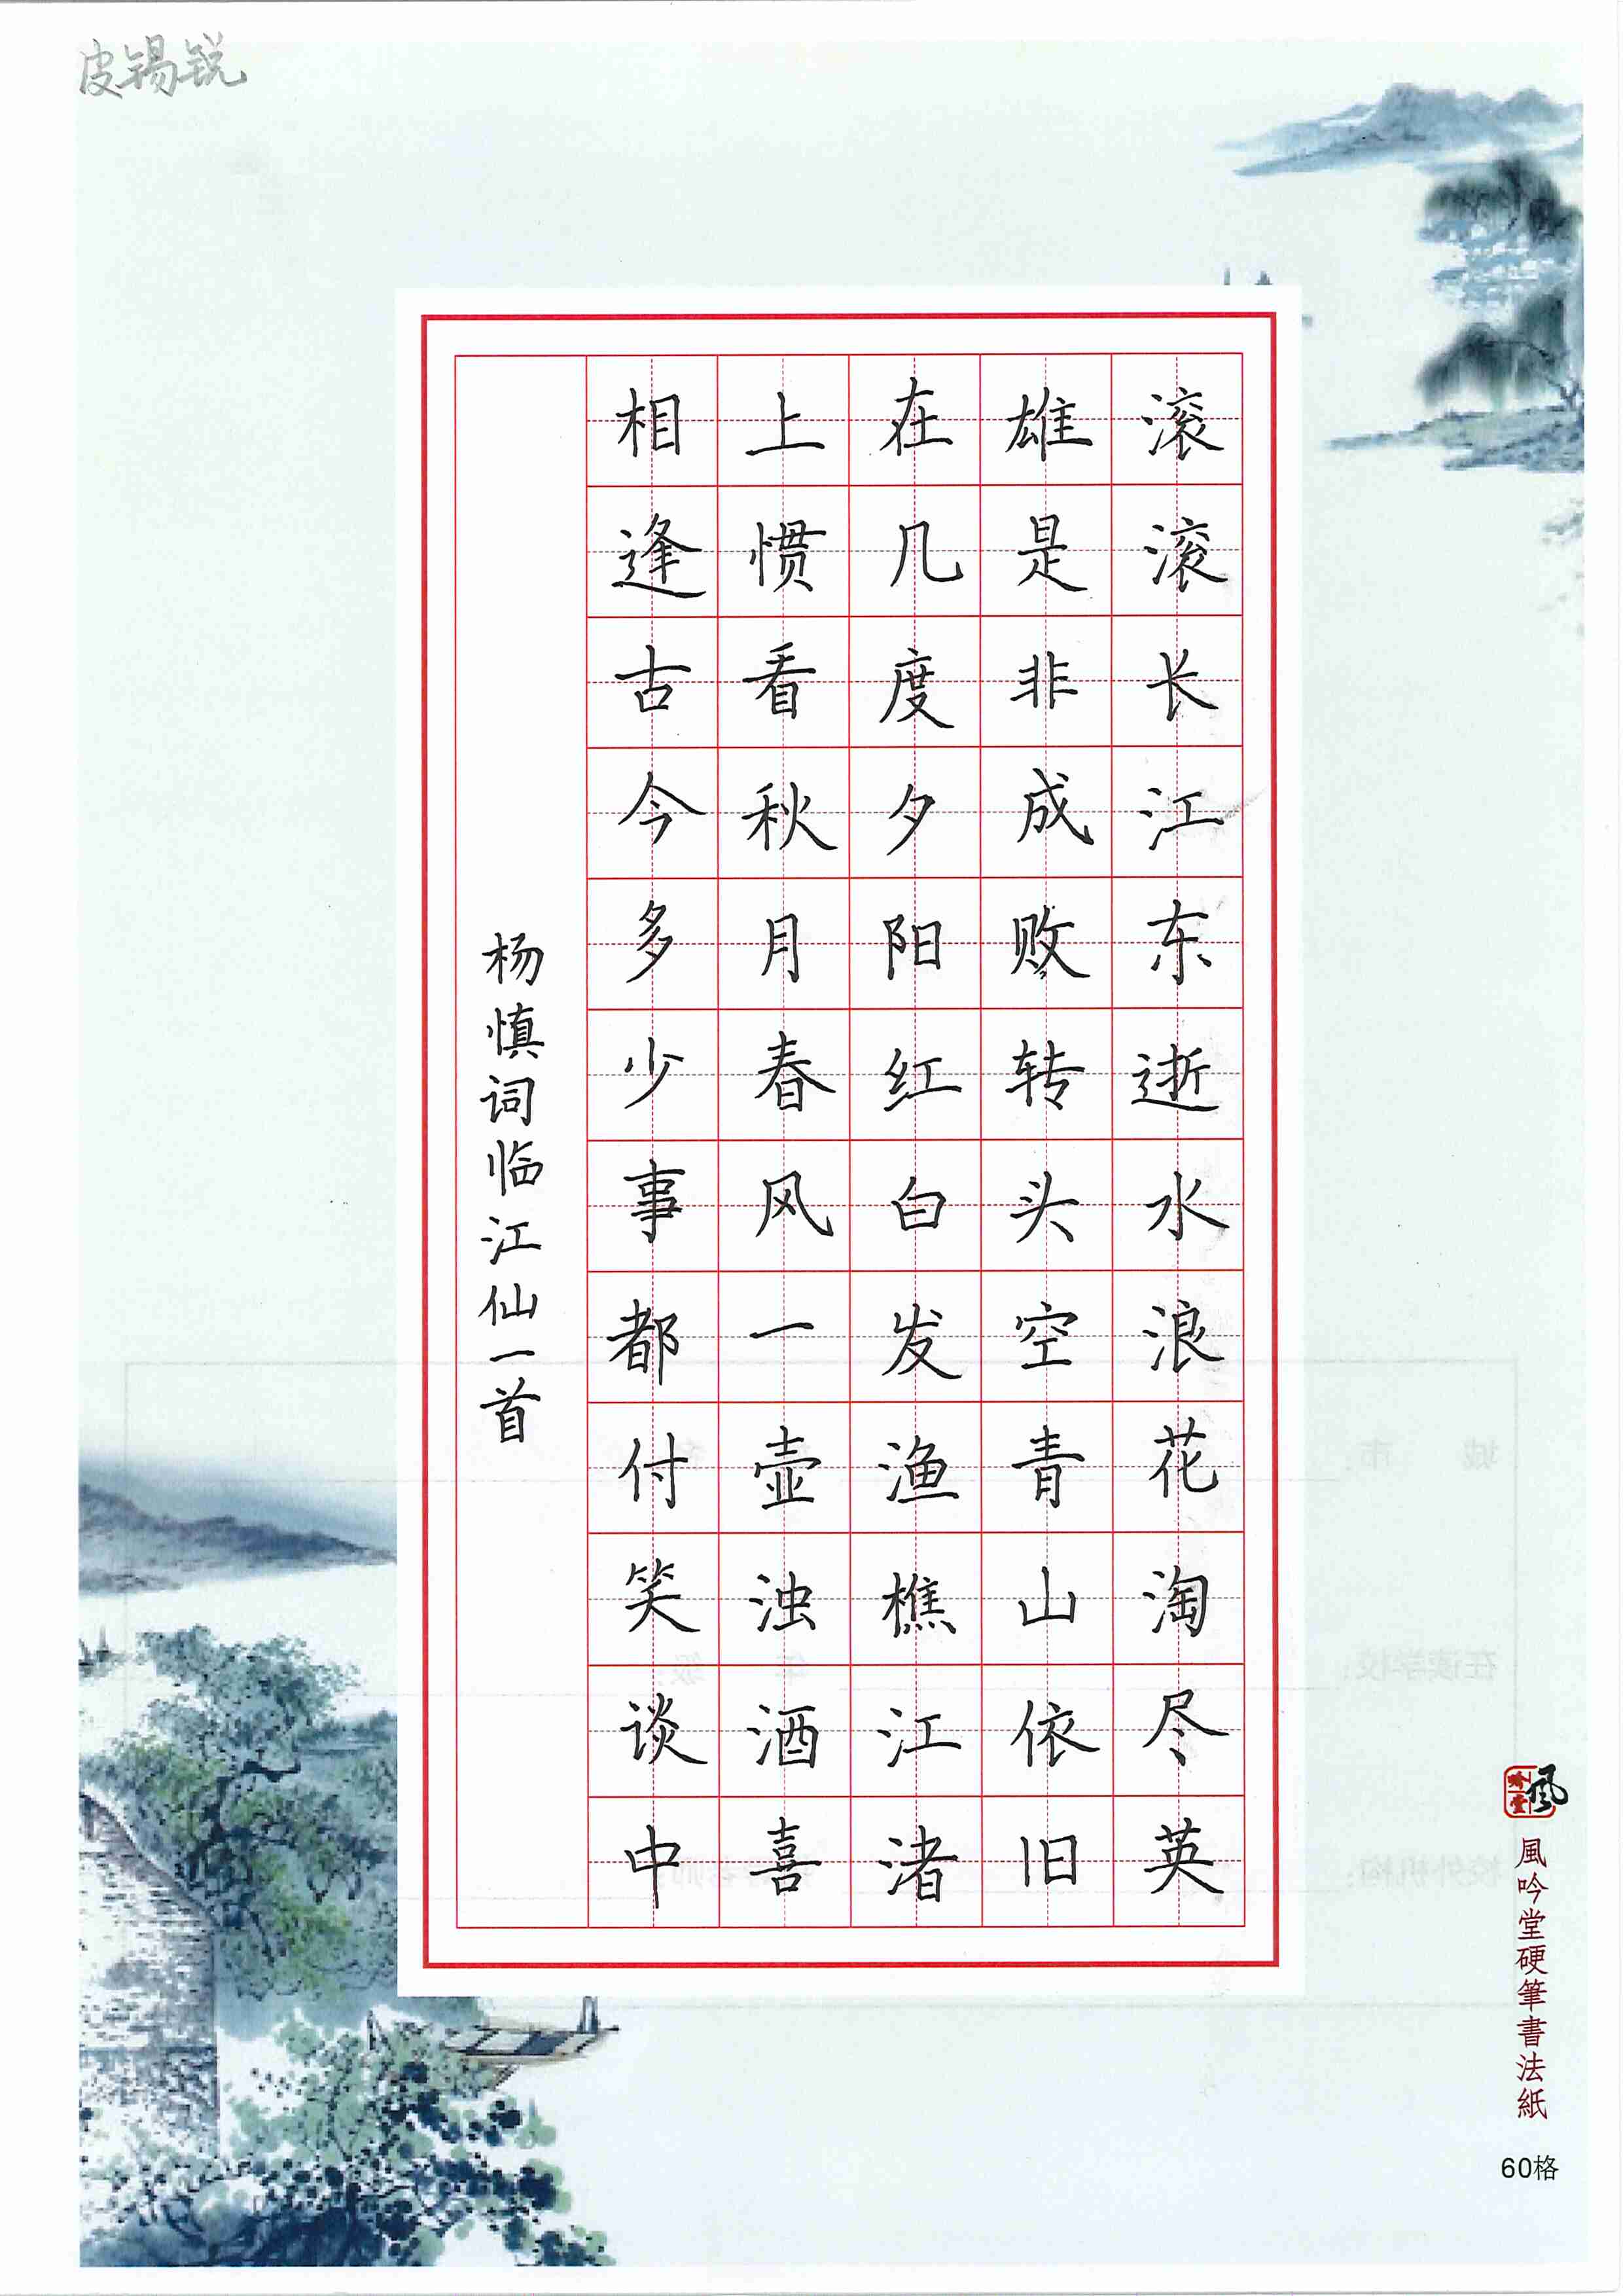 皮锡锐
滚滚长江东逝水浪花淘尽英
雄是非成败转头空青山依旧
在几度夕阳红白发渔樵江渚
上惯看秋月春风一壶浊酒喜
相逢古今多少事都付笑谈中
杨慎词临江仙一首
風吟堂
風吟堂硬筆書法紙
60格
城市:
在读学校:
年级:
校外机构: